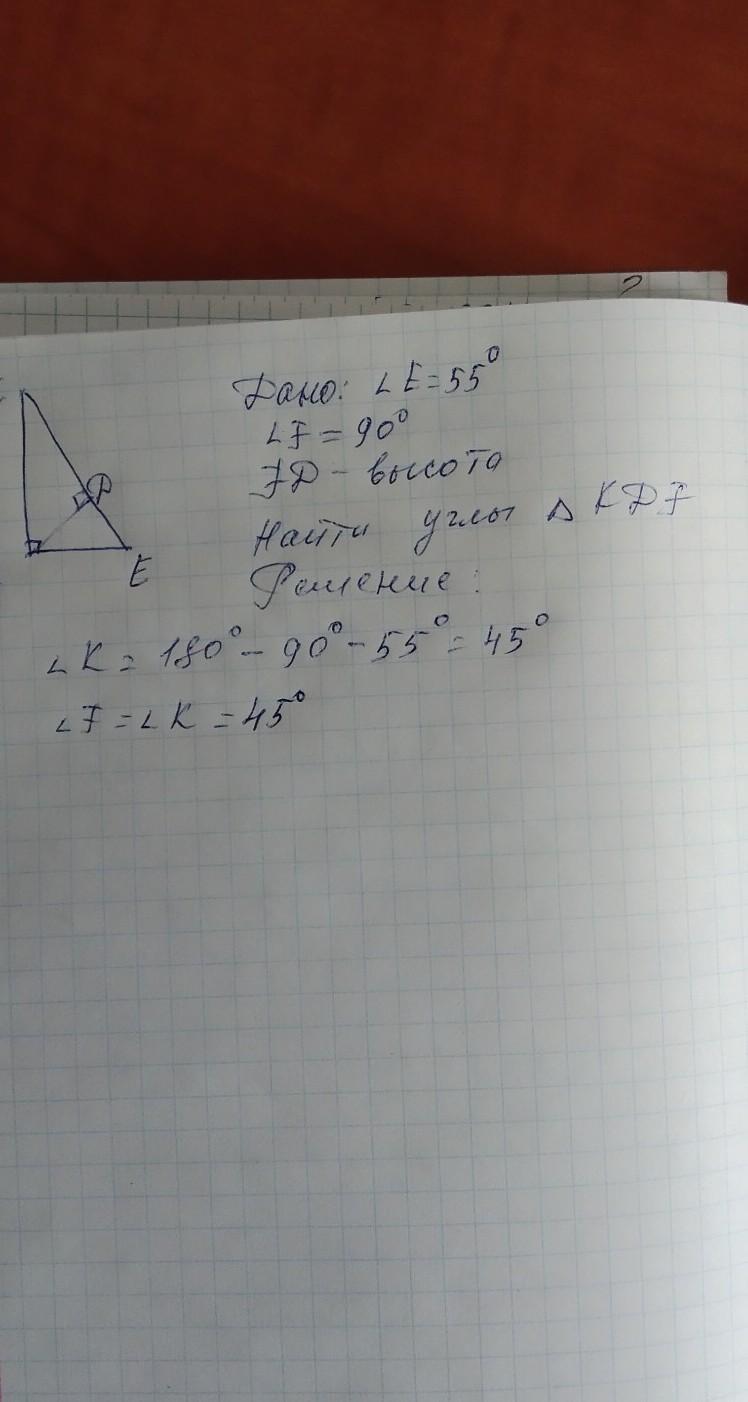 Дано: ∠E=55°
∠F=90°
FD - высота
Найти углы △ KDF
Решение:
∠K = 180° - 90° - 55° = 45°
∠F = ∠K = 45°
D
E